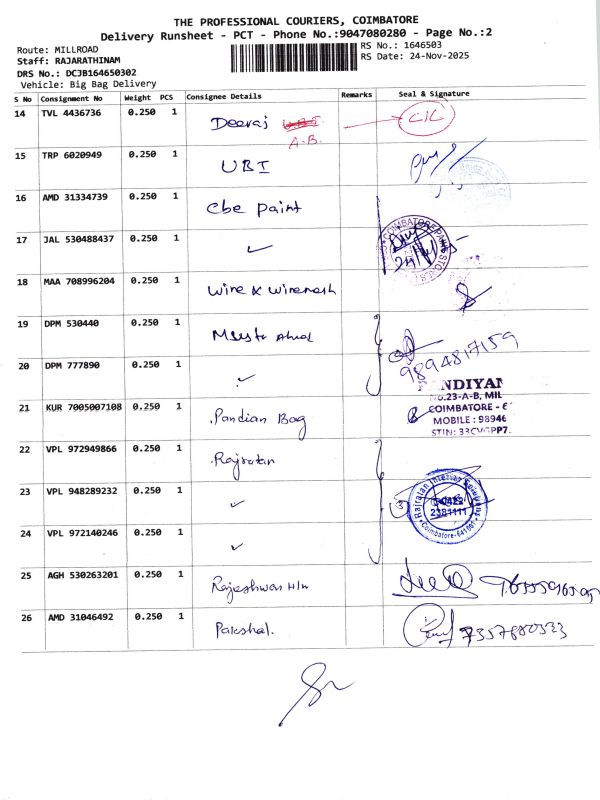 THE PROFESSIONAL COURIERS, COIMBATORE
Delivery Runsheet - PCT - Phone No.:9047080280 - Page No.:2
Route: MILLROAD
RS No.: 1646503
Staff: RAJARATHINAM
RS Date: 24-Nov-2025
DRS No.: DCJB164650302
Vehicle: Big Bag Delivery
S No Consignment No Weight PCS Consignee Details Remarks Seal & Signature
14 TVL 4436736 0.250 1 Deeraj
A-B.
15 TRP 6020949 0.250 1 UBI
16 AMD 31334739 0.250 1 Cbe Paint
17 JAL 530488437 0.250 1 ✓
18 MAA 708996204 0.250 1 Wire & Wiremesh
19 DPM 530440 0.250 1
9894817159
20 DPM 777890 0.250 1 ✓
NDIYAN
No.23-A-B, MIL
21 KUR 7005007108 0.250 1 Pandian Bag
COIMBATORE - 6
MOBILE : 98946
STIN: 33CVGPP7
22 VPL 972949866 0.250 1 Rajratan
23 VPL 948289232 0.250 1 ✓
2381111
Coimbatore-641001
24 VPL 972140246 0.250 1 ✓
25 AGH 530263201 0.250 1 Rajeshwari H/w
26 AMD 31046492 0.250 1 Pakshal.